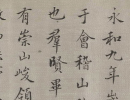 永和九年歲
于會稽山陰
也羣賢畢
有崇山峻領